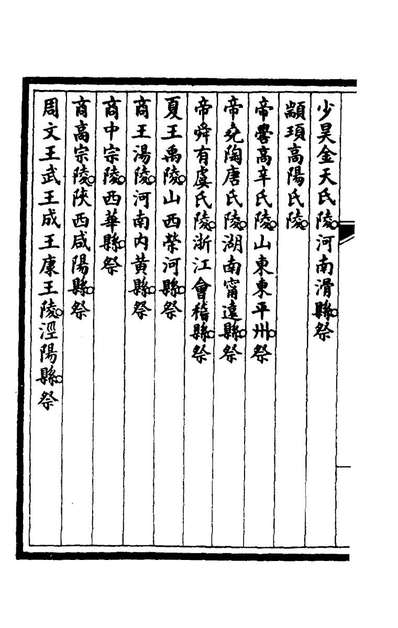 少昊金天氏陵。河南滑縣。祭
顓頊高陽氏陵。
帝嚳高辛氏陵。山東東平州。祭
帝堯陶唐氏陵。湖南甯遠縣。祭
帝舜有虞氏陵。浙江會稽縣。祭
夏王禹陵。山西榮河縣。祭
商王湯陵。河南內黃縣。祭
商中宗陵。西華縣。祭
商高宗陵。陝西咸陽縣。祭
周文王武王成王康王陵。涇陽縣。祭